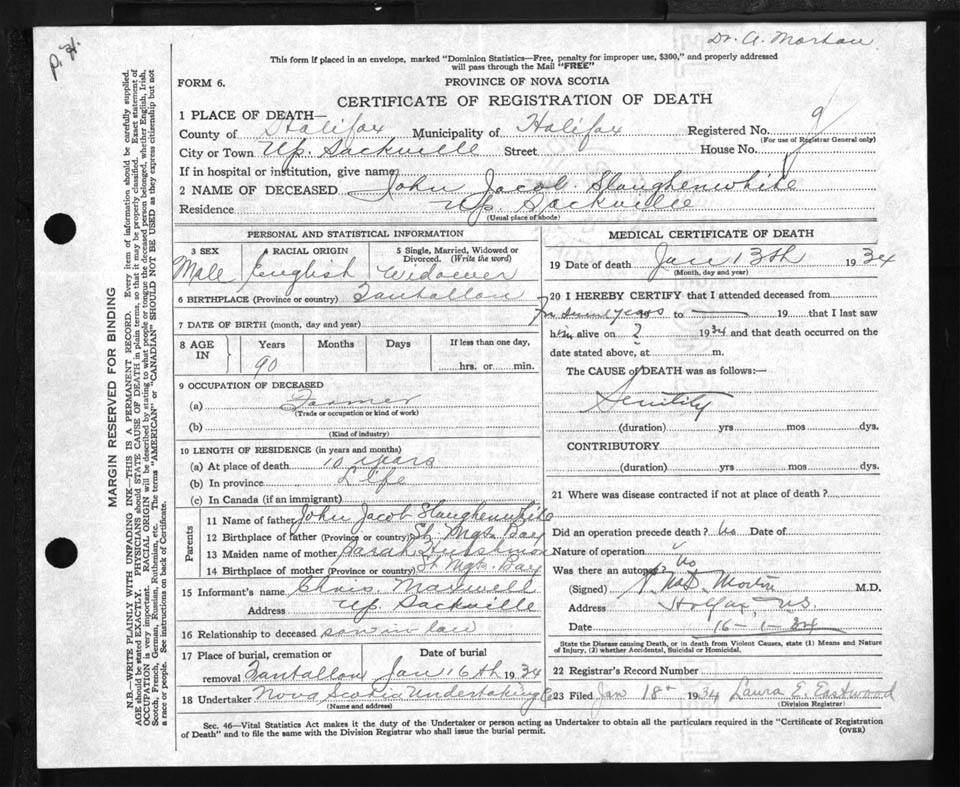 P. 21.
Dr. A. Morton
This form if placed in an envelope, marked "Dominion Statistics—Free, penalty for improper use, $300," and properly addressed
will pass through the Mail "FREE"
FORM 6.
PROVINCE OF NOVA SCOTIA
CERTIFICATE OF REGISTRATION OF DEATH
1 PLACE OF DEATH—
County of Halifax Municipality of Halifax Registered No. 9
(For use of Registrar General only)
City or Town Up. Sackville Street House No.
If in hospital or institution, give name
2 NAME OF DECEASED John Jacob Slaughenwhite
Residence Up. Sackville
(Usual place of abode)
PERSONAL AND STATISTICAL INFORMATION
3 SEX 4 RACIAL ORIGIN 5 Single, Married, Widowed or
Divorced. (Write the word)
Male English Widower
6 BIRTHPLACE (Province or country) Tantallon
7 DATE OF BIRTH (month, day and year)
8 AGE IN Years Months Days If less than one day,
90 hrs. or min.
9 OCCUPATION OF DECEASED
(a) Farmer
(Trade or occupation or kind of work)
(b)
(Kind of industry)
10 LENGTH OF RESIDENCE (in years and months)
(a) At place of death 10 years
(b) In province Life
(c) In Canada (if an immigrant)
Parents
11 Name of father John Jacob Slaughenwhite
12 Birthplace of father (Province or country) St. Mgts. Bay
13 Maiden name of mother Sarah
14 Birthplace of mother (Province or country) St Mgts. Bay
15 Informant's name Chris. Maxwell
Address Up. Sackville
16 Relationship to deceased son in law
17 Place of burial, cremation or Date of burial
removal Tantallon Jan 16th 1934
18 Undertaker Nova Scotia Undertaking Co
(Name and address)
MEDICAL CERTIFICATE OF DEATH
19 Date of death Jan 13th 1934
(Month, day and year)
20 I HEREBY CERTIFY that I attended deceased from
In years 19 to — 19 that I last saw
him alive on ? 1934 and that death occurred on the
date stated above, at m.
The CAUSE of DEATH was as follows:—
Senility
(duration) yrs mos dys.
CONTRIBUTORY
(duration) yrs mos dys.
21 Where was disease contracted if not at place of death?
Did an operation precede death? No Date of
Nature of operation
Was there an autopsy? No
(Signed) Morton M.D.
Address Halifax, N.S.
Date 16-1-34
State the Disease causing Death, or in death from Violent Causes, state (1) Means and Nature
of Injury, (2) whether Accidental, Suicidal or Homicidal.
22 Registrar's Record Number
23 Filed Jan 18th 1934 Laura E. Eastwood
(Division Registrar)
Sec. 46—Vital Statistics Act makes it the duty of the Undertaker or person acting as Undertaker to obtain all the particulars required in the "Certificate of Registration
of Death" and to file the same with the Division Registrar who shall issue the burial permit.
(OVER)
MARGIN RESERVED FOR BINDING
N.B.—WRITE PLAINLY WITH UNFADING INK—THIS IS A PERMANENT RECORD. Every item of information should be carefully supplied.
AGE should be stated EXACTLY. PHYSICIANS should STATE CAUSE OF DEATH in plain terms, so that it may be properly classified. Exact statement of
OCCUPATION is very important. RACIAL ORIGIN will be described by stating to what people or tongue the deceased person belonged, whether English, Irish,
Scotch, French, German, Russian, Ruthenian, etc. The terms "AMERICAN" or "CANADIAN" SHOULD NOT BE USED as they express citizenship but not
a race or people. See instructions on back of Certificate.